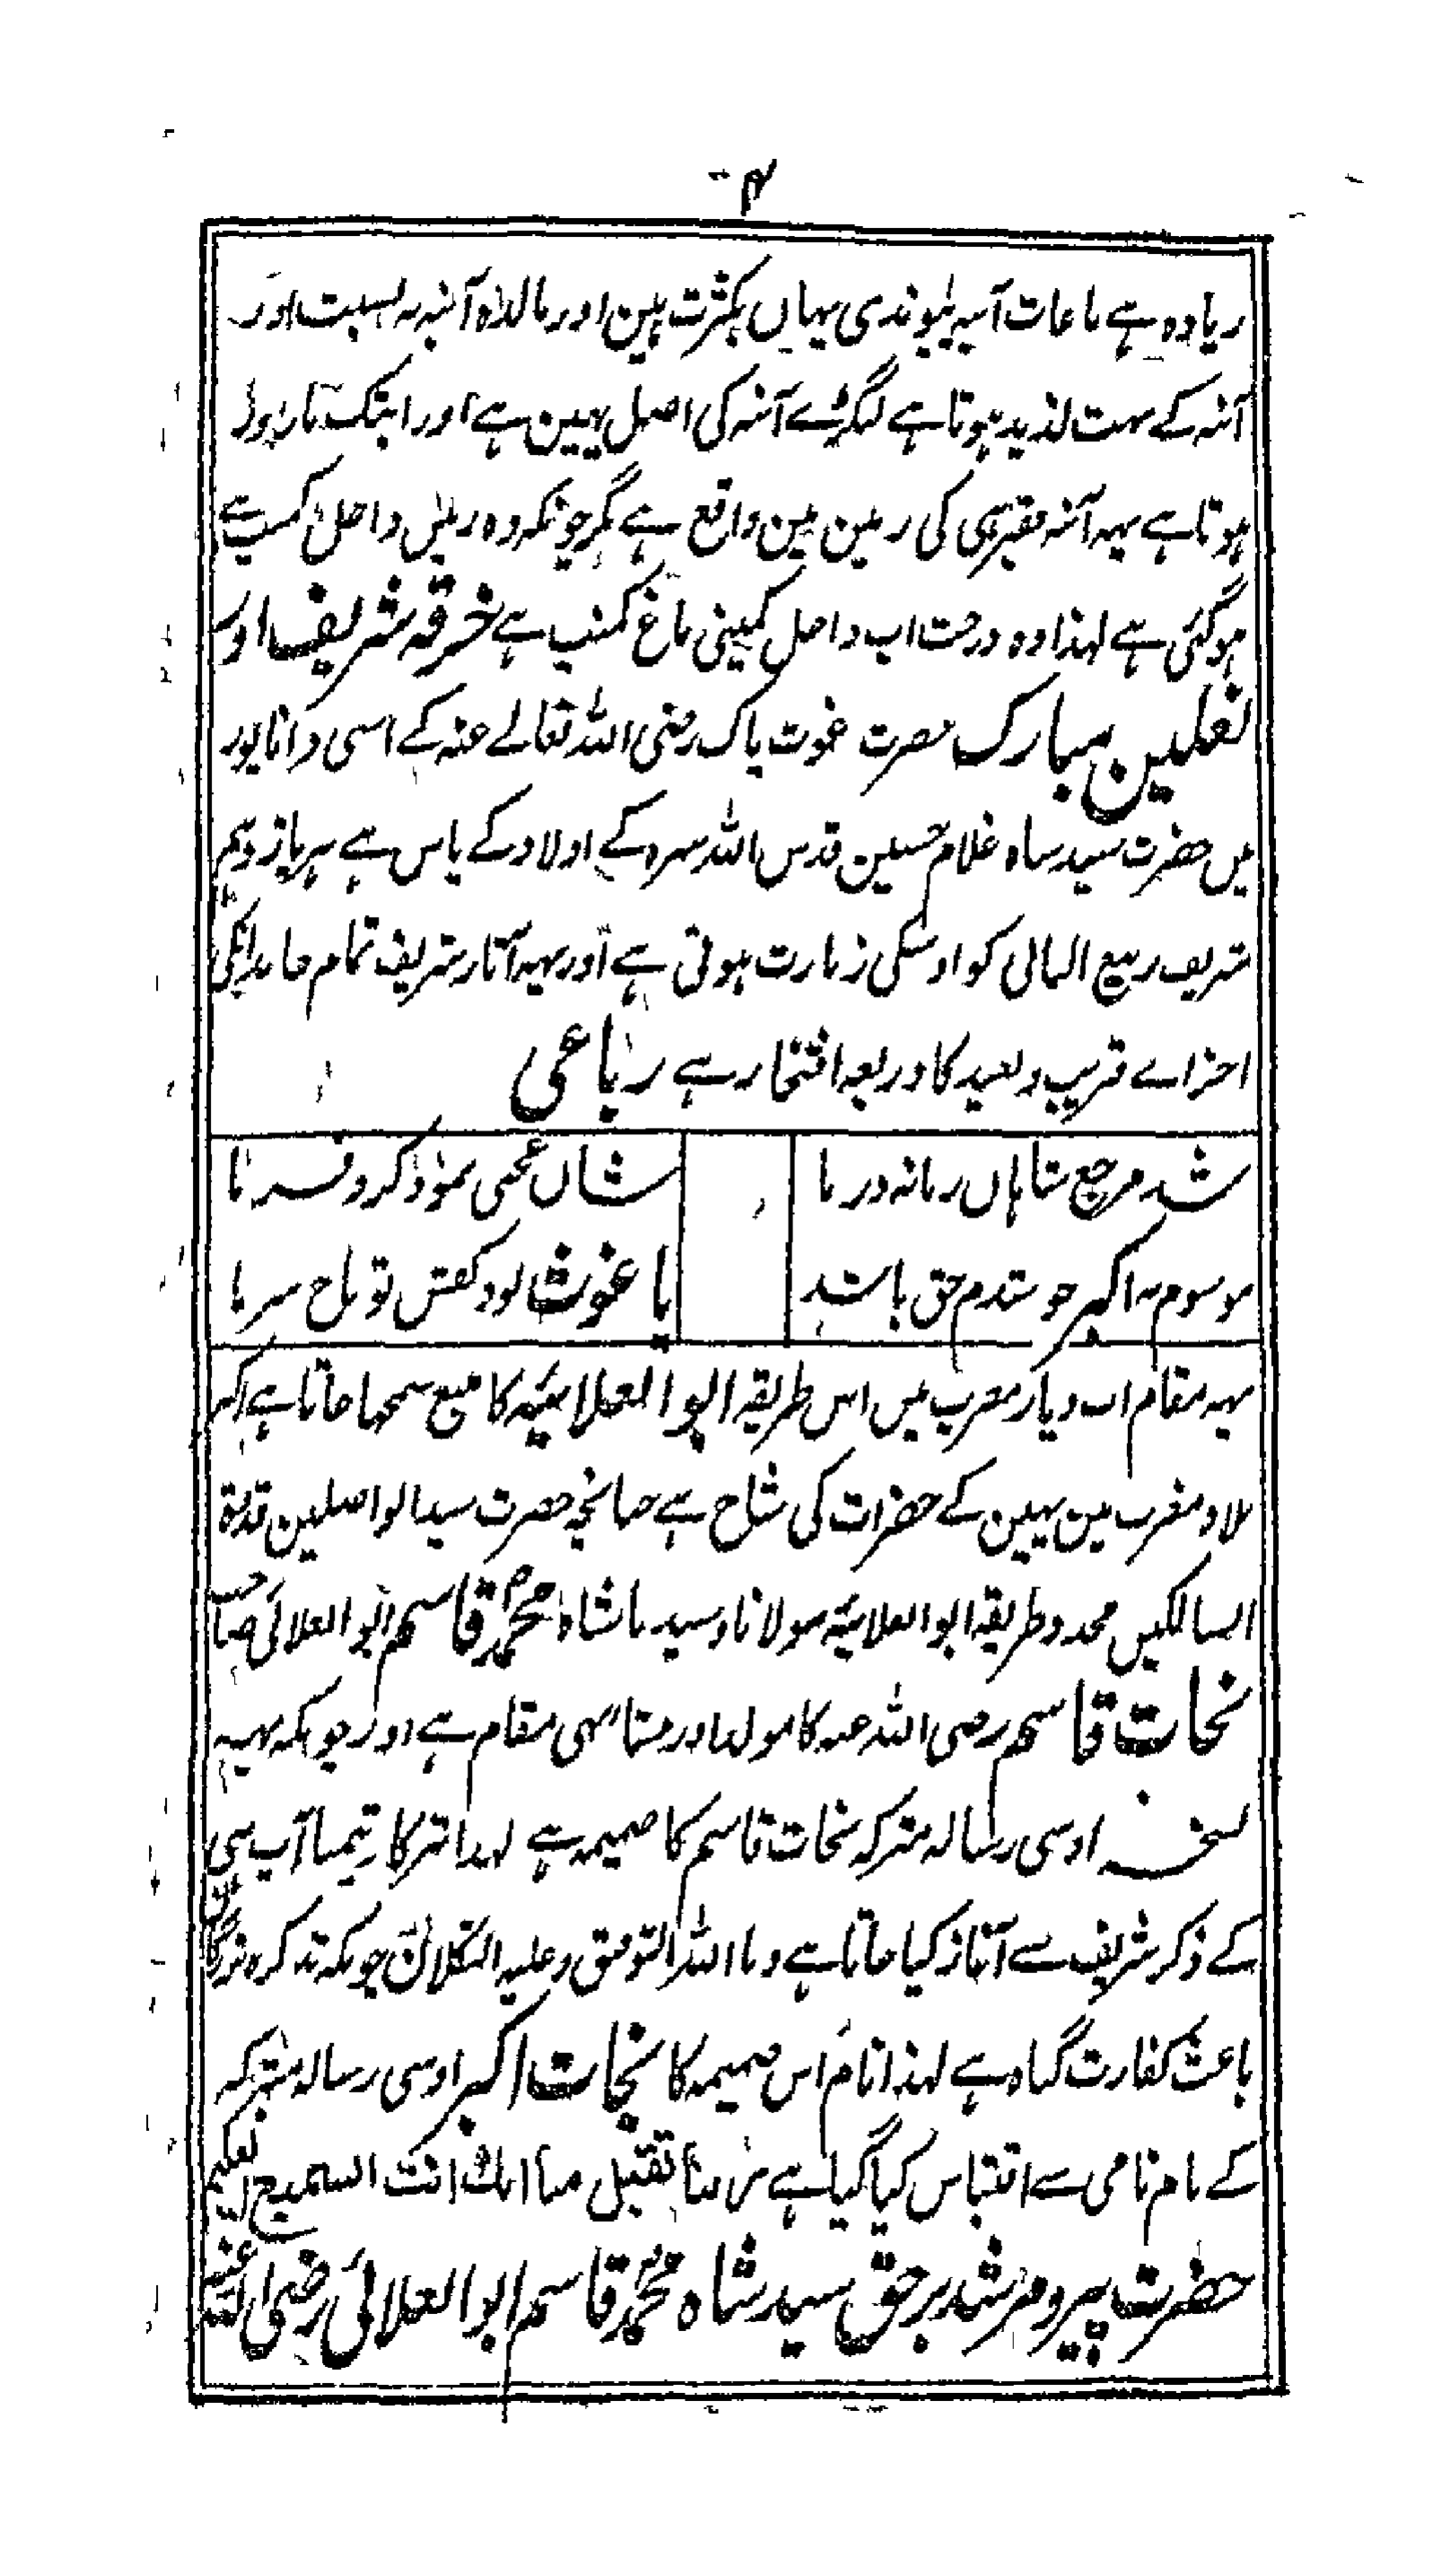 ۴
زیادہ ہے باغات آنبہ پیوندی یہاں بکثرت ہین اور مالدہ آنبہ بہ نسبت اور
آنبہ کے بہت لذیذ ہوتا ہے لنگڑے آنبہ کی اصل یہین ہے اور ابتک بار ہوا
ہوتا ہے یہہ آنبہ فقیر ہی کی زمین مین واقع ہے مگر چونکہ وہ زمین داخل کمپ ہے
ہوگئی ہے لہذا وہ درخت اب داخل کمپنی باغ کمنپ ہے خرقہ شریف اور
نعلین مبارک حضرت غوث پاک رضی اللہ تعالے عنہ کے اسی داناپور
میں حضرت سید شاہ غلام حسین قدس اللہ سرہ کے اولاد کے پاس ہے ہر یازدہم
شریف ربیع الثانی کو اوسکی زیارت ہوتی ہے اور یہہ آثار شریف تمام خاندانکی
اعزاے قریب و بعید کا ذریعہ افتخار ہے رباعی
شد مرجع شاہان زمانہ در ما
شان عجمی نمود کر و فر ما
موسوم بہ اکبر چو شدم حق باشد
یا غوث بود کفش تو تاج سر ما
یہہ مقام اب دیار مغرب میں اس طریقہ ابو العلائیہ کا منبع سمجھا جاتا ہے اکثر
بلاد مغرب مین یہین کے حضرات کی شاخ ہے چنانچہ حضرت سید الواصلین قدوۃ
السالکین مجدد طریقہ ابو العلائیہ مولانا و سیدنا شاہ محمد قاسم ابو العلائی صاحب
نجات قاسم رضی اللہ عنہ کا مولد اور منشا یہی مقام ہے اور چونکہ یہہ
نسخہ اوسی رسالہ متبرکہ نجات قاسم کا ضمیمہ ہے لہذا تبرکا و تیمنا آپ ہی
کے ذکر شریف سے آغاز کیا جاتا ہے و باللہ التوفیق و علیہ التکلان چونکہ تذکرہ بزرگان
باعث کفارت گناہ ہے لہذا نام اس ضمیمہ کا نجات اکبر اوسی رسالہ متبرکہ
کے نام نامی سے اقتباس کیا گیا ہے ربنا تقبل منا انک انت السمیع العلیم
حضرت پیر و مرشد برحق سید شاہ محمد قاسم ابو العلائی رضی اللہ عنہ